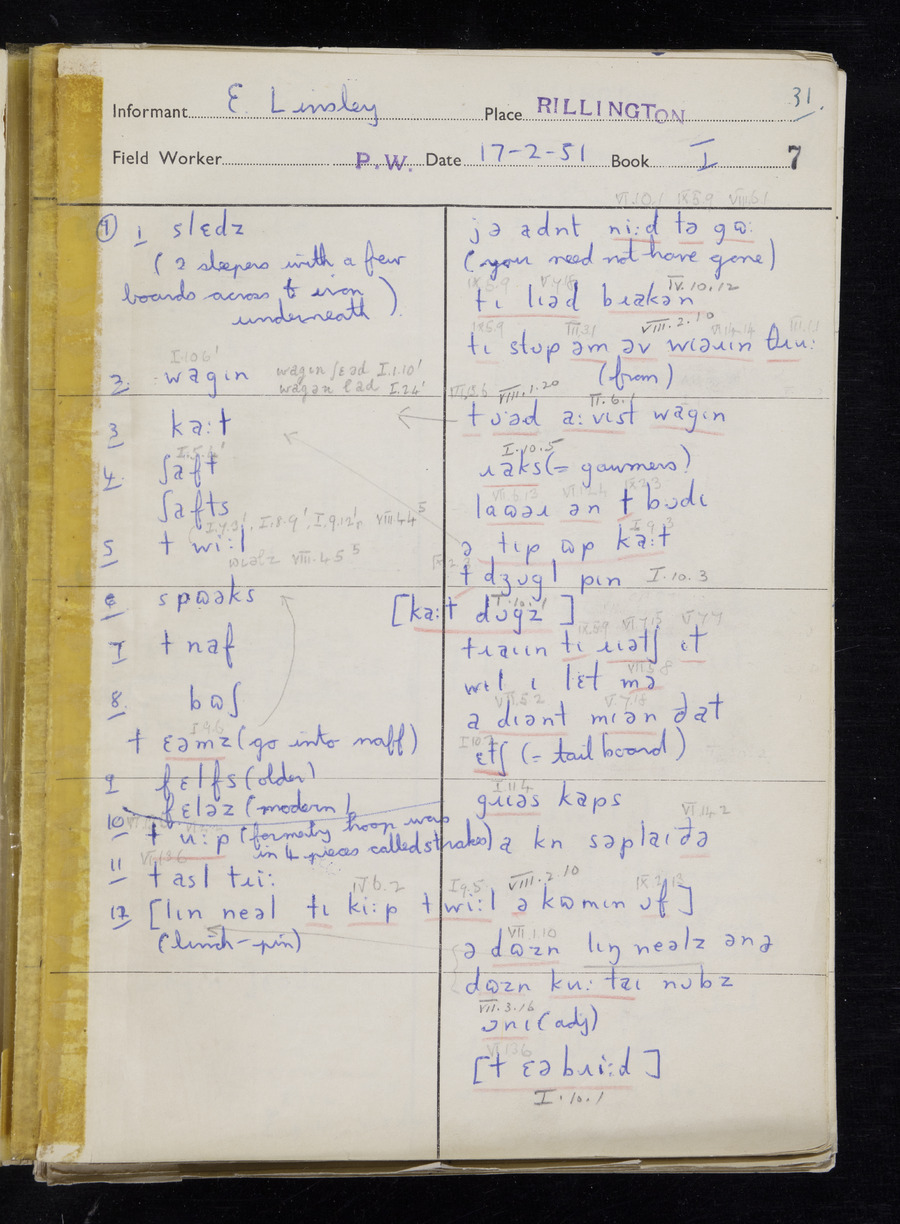 31.
Informant E. Linsley Place RILLINGTON
Field Worker P.W. Date 17-2-51 Book I 7
VI.10.1 IX.5.9 VIII.6.1
① 1 slɛdz
( 2 sleepers with a few
boards across & iron
underneath ).
I.10.6'
2. wagɪn wagɪn ʃɛəd I.1.10'
wagən lad I.24'
3 ka:t
I.5.4'
4. ʃaft
ʃafts
I.7.3', I.8.9', I.9.12', VIII.4.4 5
5 t wi:l
wiəlz VIII.4.5 5
6 spɷəks
7 t naf
8. bɷʃ
I.9.6
t ɛəmz (go into naff)
9 fɛlfs (older)
fɛləz (modern)
10 t ɹu:p (formerly hoop was
in 4 pieces called strakes)
VI.13.6
11 t asl tɹi:
IV.6.2 I.9.5 VIII.2.10 IX.2.13
12 [lɪn neəl tɪ ki:p t wi:l ə kɷmɪn ɔf]
(linch-pin)
jə adnt ni:d tə gɷ:
(you need not have gone)
IX.5.9 V.7.18 IV.10.12
tɪ liəd bɹakən
IX.5.9 III.3.1 VIII.2.10 VI.14.14 III.1.1
tɪ stɒp əm əv wiəɹɪn θɹu:
(from)
VIII.3.6 VIII.1.20 II.6.1
t ɔəd a:vɪst wagɪn
I.10.5
ɹaks (= gawmers)
VII.6.13 VI.12.4 IX.2.3
laɷəɹ ən t bɒdɪ
I.9.3
ə tɪp ɷp ka:t
IX.2.3
t dʒɒgl pɪn I.10.3
[ka:t dɒgz]
IX.5.9 VI.7.15 V.7.7
tɹaɪɪn tɪ ɹiətʃ ɪt
VII.5.8
wɪl ɪ lɛt mə
VII.5.2 V.7.18
a diənt miən ðat
I.10.2
ɛtʃ (= tail board)
I.11.4
gɹiəs kaps
VI.14.2
a kn səplaɪ ðə
VII.1.10
ə dɷzn lɪŋ neəlz ənə
dɷzn kɹu: taɪ nɒbz
VII.3.16
ɔnɪ (adj)
VI.13.6
[t ɛəbɹi:d]
I.10.1